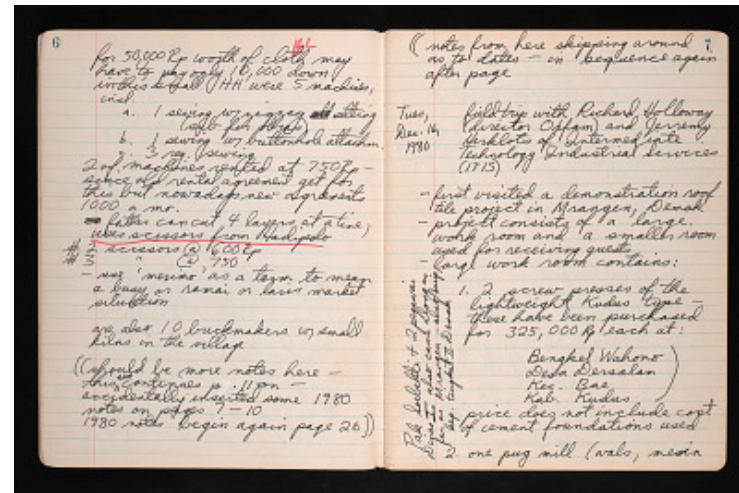 6
for 50,000 Rp worth of cloth may
have to pay only 10,000 down
within small HH were 5 machines,
incl.
a. 1 sewing w/ zigzag setting
b. 1 sewing w/ buttonhole attachm.
c. 3 reg. sewing
2 of machines rented at 750 Rp –
since old rental agreement get for
this but nowadays new agreements
1000 a mo.
– father can cut 4 layers at a time,
uses scissors from Hadipolo
# 2 scissors @ 600 Rp
# 3 " @ 750
– use 'merino' as a term to mean
a busy or ramai or laris market
situation
are also 10 brickmakers w/ small
kilns in the village
((should be more notes here –
this continues p. 11 on –
accidentally inserted some 1980
notes on pages 7–10
1980 notes begin again page 26))
7
((notes from here skipping around
as to dates – in sequence again
after page
Tues,
Dec. 16,
1980
field trip with Richard Holloway
(director Oxfam) and Jeremy
of Intermediate
Technology Industrial Services
(ITIS)
– first visited a demonstration roof
tile project in Mranggen, Demak
– project consists of a large
work room and a smaller room
used for receiving guests
– large work room contains:
1. 2 screw presses of the
lightweight Kudus type –
these have been purchased
for 325,000 Rp each at:
Bengkel Wahono
Desa Dersalan
Kec. Bae
Kab. Kudus
price does not include cost
of cement foundations used
2. one pug mill (wals, mesin